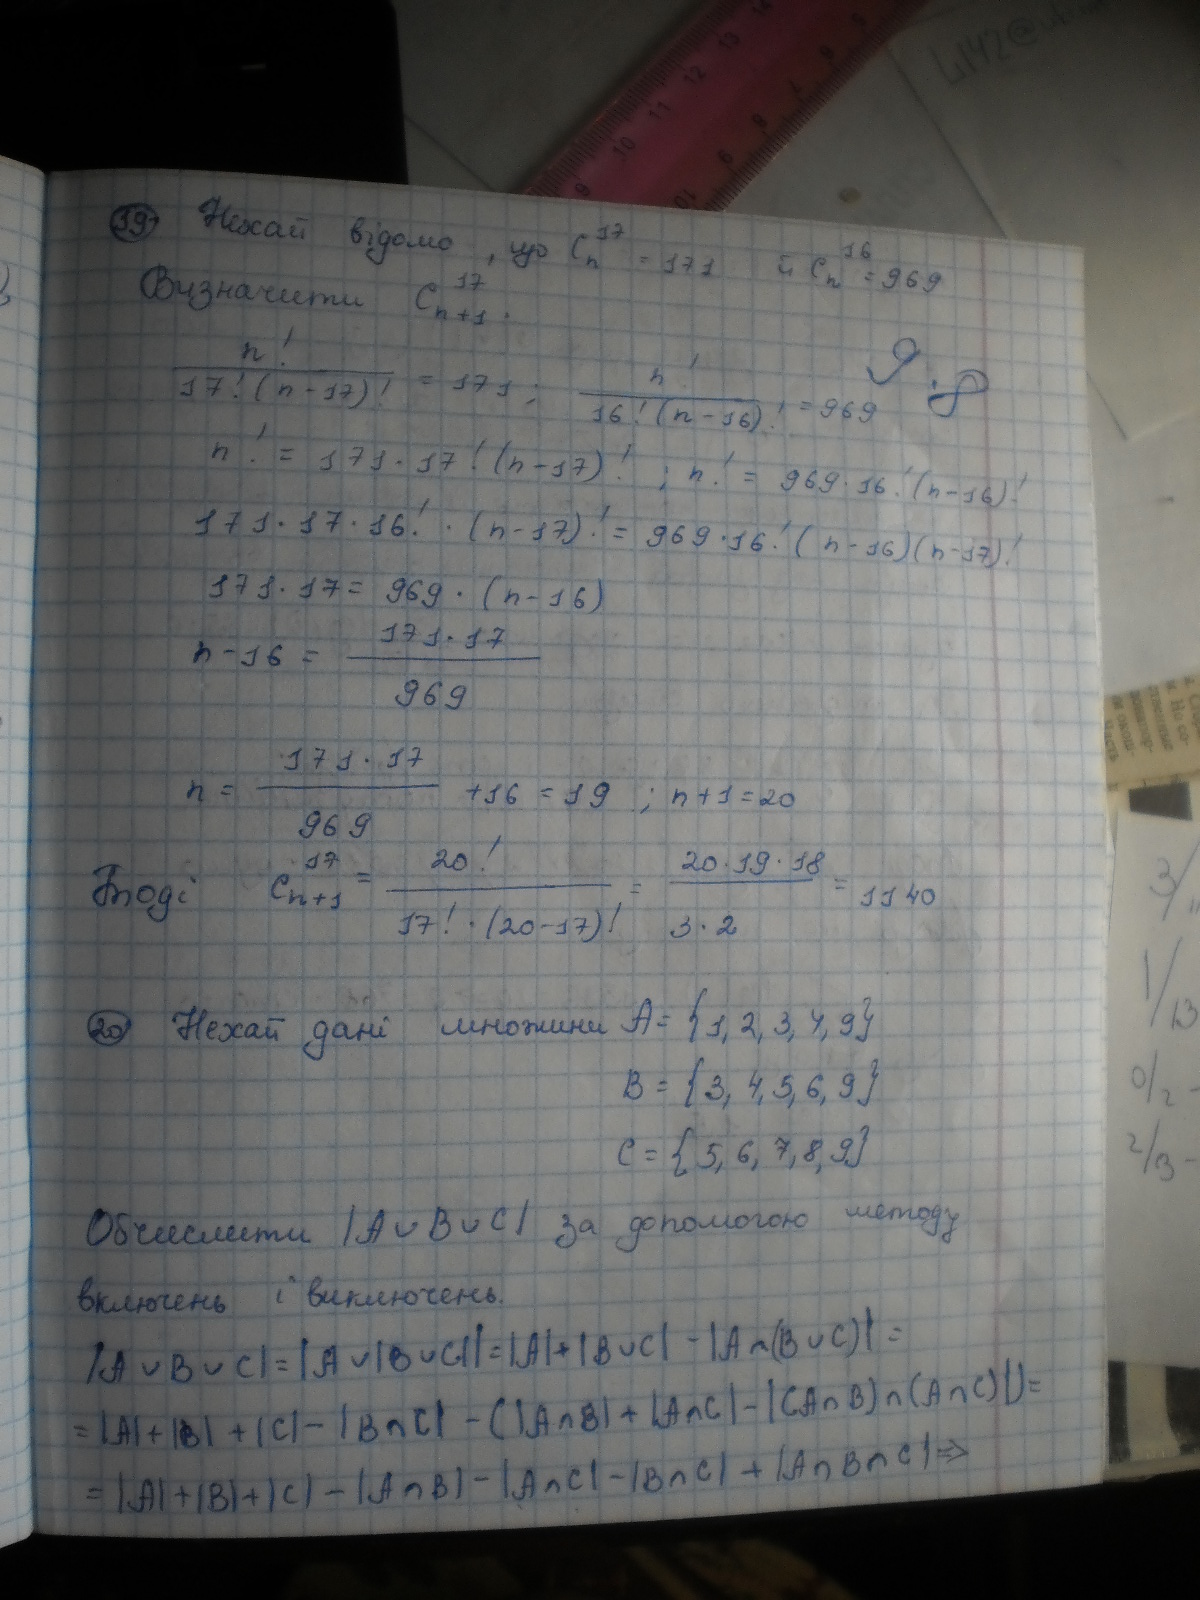 19 Нехай відомо, що C_n^17 = 171 й C_n^16 = 969
Визначити C_{n+1}^17.
n! / 17!(n-17)! = 171; n! / 16!(n-16)! = 969
n! = 171·17!(n-17)!; n! = 969·16!(n-16)!
171·17·16!·(n-17)! = 969·16!(n-16)(n-17)!
171·17 = 969·(n-16)
n-16 = 171·17 / 969
n = 171·17 / 969 + 16 = 19; n+1 = 20
Тоді C_{n+1}^17 = 20! / 17!·(20-17)! = 20·19·18 / 3·2 = 1140
20 Нехай дані множини A = {1, 2, 3, 4, 9}
B = {3, 4, 5, 6, 9}
C = {5, 6, 7, 8, 9}
Обчислити |A∪B∪C| за допомогою методу
включень і виключень.
|A∪B∪C| = |A∪|B∪C|| = |A|+|B∪C| - |A∩(B∪C)| =
= |A|+|B|+|C| - |B∩C| - (|A∩B|+|A∩C| - |(A∩B)∩(A∩C)|) =
= |A|+|B|+|C| - |A∩B| - |A∩C| - |B∩C| + |A∩B∩C| ⇒